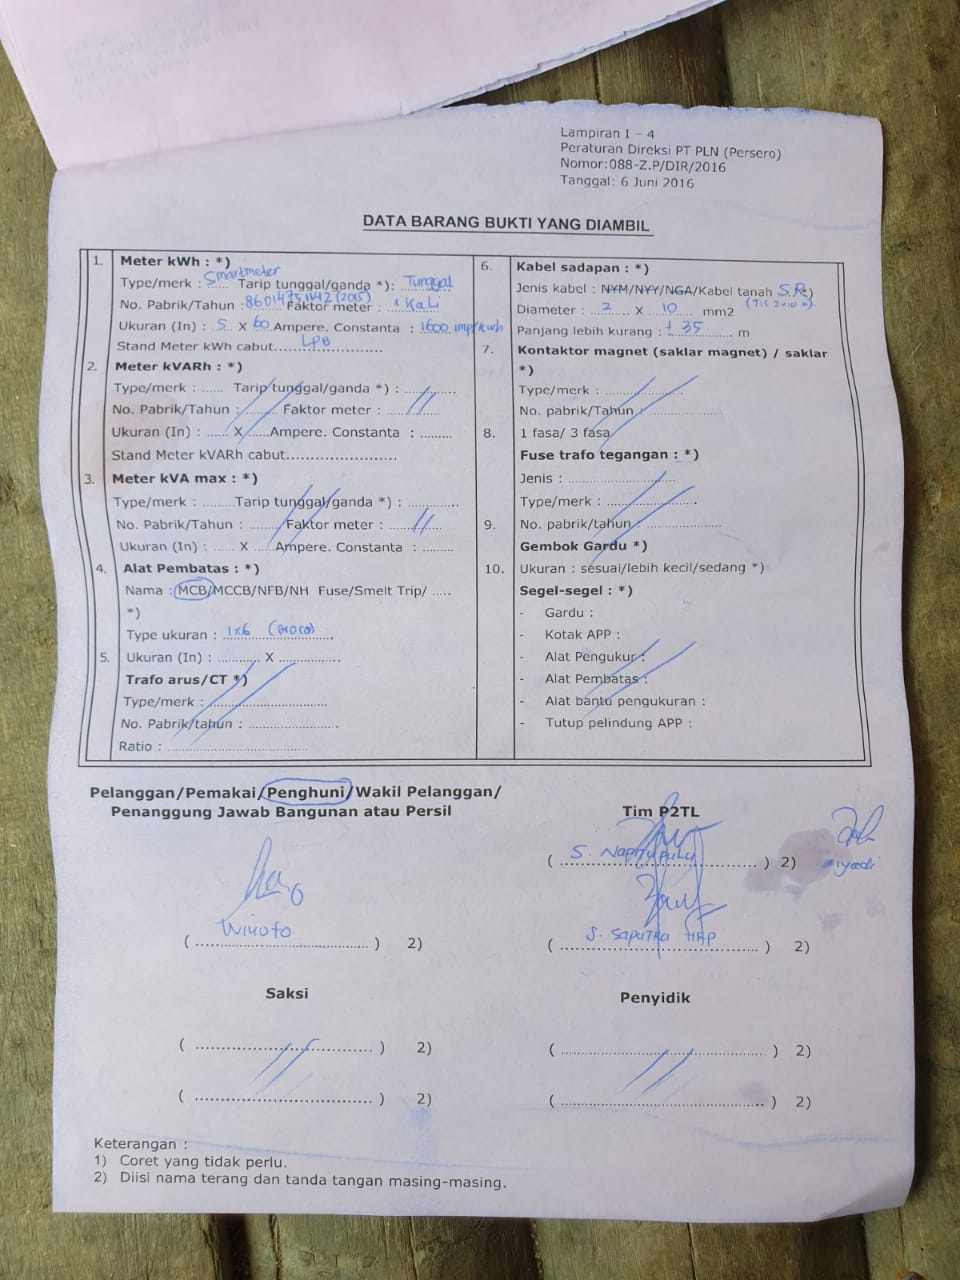 Lampiran I – 4
Peraturan Direksi PT PLN (Persero)
Nomor:088-Z.P/DIR/2016
Tanggal: 6 Juni 2016
DATA BARANG BUKTI YANG DIAMBIL
1. Meter kWh : *)
Type/merk : Smartmeter Tarip tunggal/ganda *): Tunggal
No. Pabrik/Tahun : 86014751142 (2015) Faktor meter : 1 Kali
Ukuran (In) : 5 X 60 Ampere. Constanta : 1600 imp/kwh
Stand Meter kWh cabut.. LPB
2. Meter kVARh : *)
Type/merk : ...... Tarip tunggal/ganda *) : ............
No. Pabrik/Tahun : ........ Faktor meter : ............
Ukuran (In) : ...... X ......Ampere. Constanta : ........
Stand Meter kVARh cabut........................
3. Meter kVA max : *)
Type/merk : ......Tarip tunggal/ganda *) : ............
No. Pabrik/Tahun : ........ Faktor meter : ............
Ukuran (In) : ...... X ......Ampere. Constanta : ........
4. Alat Pembatas : *)
Nama : MCB/MCCB/NFB/NH Fuse/Smelt Trip/ .....
*)
Type ukuran : 1x6 (Broco)
5. Ukuran (In) : ............ X ................
Trafo arus/CT *)
Type/merk : ..............................
No. Pabrik/tahun : ......................
Ratio : ..................................
6. Kabel sadapan : *)
Jenis kabel : NYM/NYY/NGA/Kabel tanah S.R
Diameter : 2 X 10 mm2 (TIC 2x10 )
Panjang lebih kurang : ± 35 m
7. Kontaktor magnet (saklar magnet) / saklar
*)
Type/merk : ....................
No. pabrik/Tahun : ....................
8. 1 fasa/ 3 fasa
Fuse trafo tegangan : *)
Jenis : ............................
Type/merk : ........................
9. No. pabrik/tahun : ....................
Gembok Gardu *)
10. Ukuran : sesuai/lebih kecil/sedang *)
Segel-segel : *)
- Gardu :
- Kotak APP :
- Alat Pengukur :
- Alat Pembatas :
- Alat bantu pengukuran :
- Tutup pelindung APP :
Pelanggan/Pemakai/Penghuni/Wakil Pelanggan/
Penanggung Jawab Bangunan atau Persil
Wiroto
( ........................................ ) 2)
Tim P2TL
( S. Napitupulu ) 2)
( S. Saputra HRP ) 2)
Saksi
( ........................................ ) 2)
( ........................................ ) 2)
Penyidik
( ........................................ ) 2)
( ........................................ ) 2)
Keterangan :
1) Coret yang tidak perlu.
2) Diisi nama terang dan tanda tangan masing-masing.